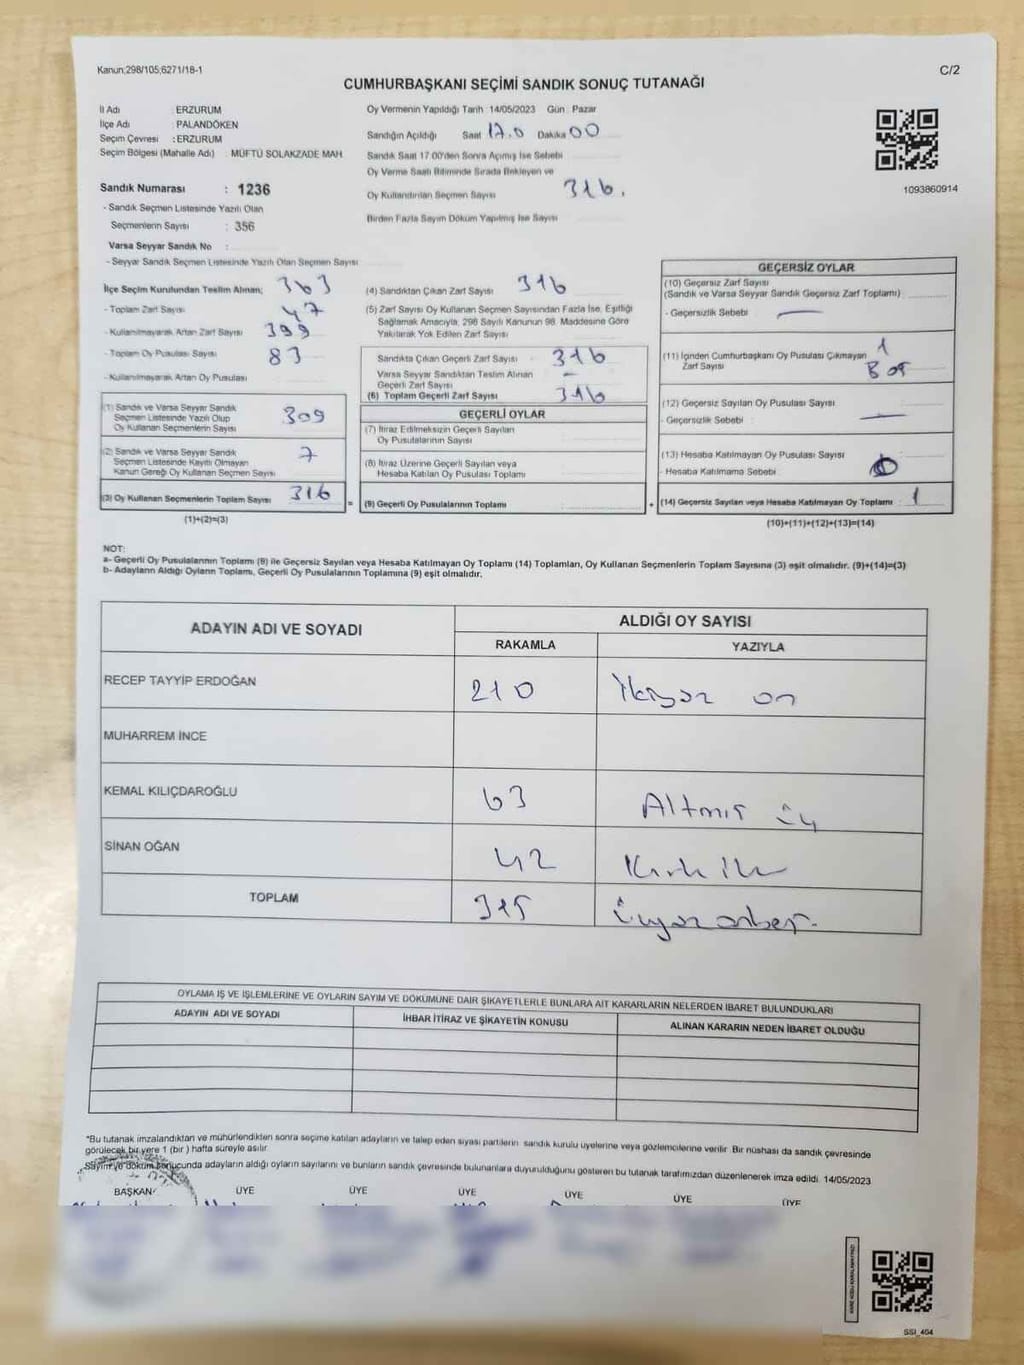 Kanun;298/105;6271/18-1
C/2
CUMHURBAŞKANI SEÇİMİ SANDIK SONUÇ TUTANAĞI
İl Adı : ERZURUM
İlçe Adı : PALANDÖKEN
Seçim Çevresi : ERZURUM
Seçim Bölgesi (Mahalle Adı) : MÜFTÜ SOLAKZADE MAH
Sandık Numarası : 1236
- Sandık Seçmen Listesinde Yazılı Olan
Seçmenlerin Sayısı : 356
Varsa Seyyar Sandık No :
- Seyyar Sandık Seçmen Listesinde Yazılı Olan Seçmen Sayısı
Oy Vermenin Yapıldığı Tarih : 14/05/2023 Gün : Pazar
Sandığın Açıldığı Saat 17.0 Dakika 00
Sandık Saat 17.00'den Sonra Açımış İse Sebebi
Oy Verme Saati Bitiminde Sırada Bekleyen ve
Oy Kullandırılan Seçmen Sayısı 316.
Birden Fazla Sayım Döküm Yapılmış İse Sayısı
1093860914
İlçe Seçim Kurulundan Teslim Alınan; 363
- Toplam Zarf Sayısı 47
- Kullanılmayarak Artan Zarf Sayısı 399
- Toplam Oy Pusulası Sayısı 83
- Kullanılmayarak Artan Oy Pusulası
(1) Sandık ve Varsa Seyyar Sandık
Seçmen Listesinde Yazılı Olup
Oy Kullanan Seçmenlerin Sayısı 309
(2) Sandık ve Varsa Seyyar Sandık
Seçmen Listesinde Kayıtlı Olmayan
Kanun Gereği Oy Kullanan Seçmen Sayısı 7
(3) Oy Kullanan Seçmenlerin Toplam Sayısı 316
(1)+(2)=(3)
(4) Sandıktan Çıkan Zarf Sayısı 316
(5) Zarf Sayısı Oy Kullanan Seçmen Sayısından Fazla İse, Eşitliği
Sağlamak Amacıyla, 298 Sayılı Kanunun 98. Maddesine Göre
Yakılarak Yok Edilen Zarf Sayısı
Sandıkta Çıkan Geçerli Zarf Sayısı 316
Varsa Seyyar Sandıktan Teslim Alınan
Geçerli Zarf Sayısı -
(6) Toplam Geçerli Zarf Sayısı 316
GEÇERLİ OYLAR
(7) İtiraz Edilmeksizin Geçerli Sayılan
Oy Pusulalarının Sayısı
(8) İtiraz Üzerine Geçerli Sayılan veya
Hesaba Katılan Oy Pusulası Toplamı
= (9) Geçerli Oy Pusulalarının Toplamı +
GEÇERSİZ OYLAR
(10) Geçersiz Zarf Sayısı
(Sandık ve Varsa Seyyar Sandık Geçersiz Zarf Toplamı)
- Geçersizlik Sebebi -
(11) İçinden Cumhurbaşkanı Oy Pusulası Çıkmayan 1
Zarf Sayısı Boş
(12) Geçersiz Sayılan Oy Pusulası Sayısı
- Geçersizlik Sebebi : -
(13) Hesaba Katılmayan Oy Pusulası Sayısı
- Hesaba Katılmama Sebebi
(14) Geçersiz Sayılan veya Hesaba Katılmayan Oy Toplamı : 1
(10)+(11)+(12)+(13)=(14)
NOT:
a- Geçerli Oy Pusulalarının Toplamı (9) ile Geçersiz Sayılan veya Hesaba Katılmayan Oy Toplamı (14) Toplamları, Oy Kullanan Seçmenlerin Toplam Sayısına (3) eşit olmalıdır. (9)+(14)=(3)
b- Adayların Aldığı Oyların Toplamı, Geçerli Oy Pusulalarının Toplamına (9) eşit olmalıdır.
ADAYIN ADI VE SOYADI
ALDIĞI OY SAYISI
RAKAMLA YAZIYLA
RECEP TAYYİP ERDOĞAN 210 İkiyüz on
MUHARREM İNCE
KEMAL KILIÇDAROĞLU 63 Altmış üç
SİNAN OĞAN 42 Kırk iki
TOPLAM 315 üçyüz onbeş.
OYLAMA İŞ VE İŞLEMLERİNE VE OYLARIN SAYIM VE DÖKÜMÜNE DAİR ŞİKAYETLERLE BUNLARA AİT KARARLARIN NELERDEN İBARET BULUNDUKLARI
ADAYIN ADI VE SOYADI İHBAR İTİRAZ VE ŞİKAYETİN KONUSU ALINAN KARARIN NEDEN İBARET OLDUĞU
*Bu tutanak imzalandıktan ve mühürlendikten sonra seçime katılan adayların ve talep eden siyasi partilerin sandık kurulu üyelerine veya gözlemcilerine verilir. Bir nüshası da sandık çevresinde
görülecek bir yere 1 (bir ) hafta süreyle asılır.
Sayım ve döküm sonucunda adayların aldığı oyların sayılarını ve bunların sandık çevresinde bulunanlara duyurulduğunu gösteren bu tutanak tarafımızdan düzenlenerek imza edildi. 14/05/2023
BAŞKAN ÜYE ÜYE ÜYE ÜYE ÜYE ÜYE
SSI_404